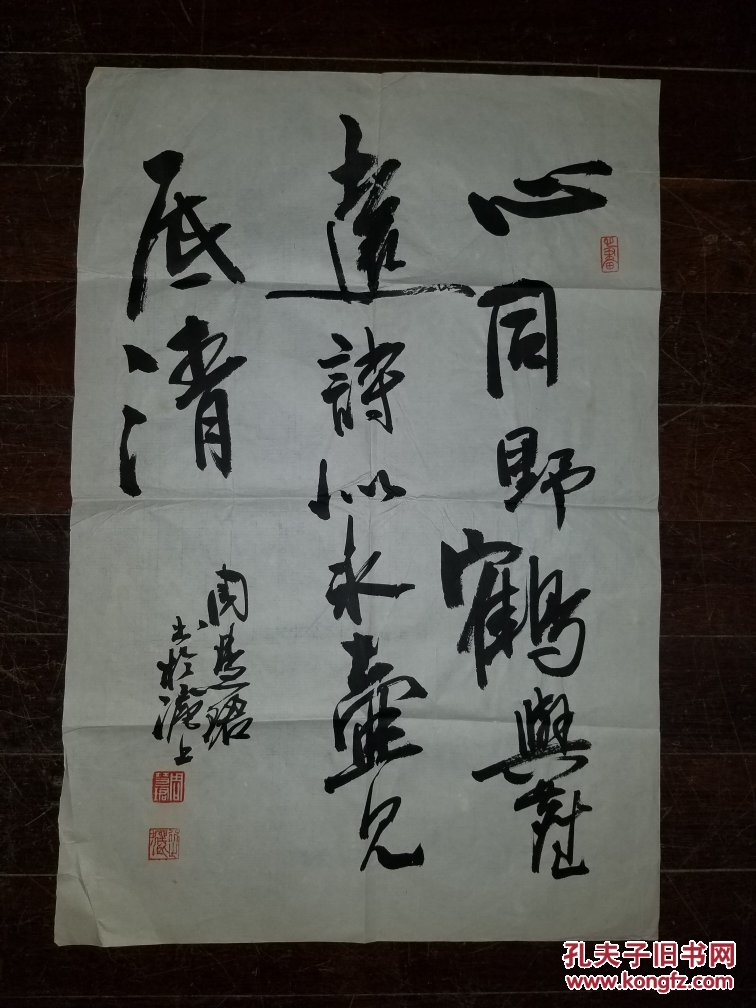 心同野鶴與塵
遠詩似氷壺見
底清
周慧珺
书於滬上
孔夫子旧书网
www.kongfz.com